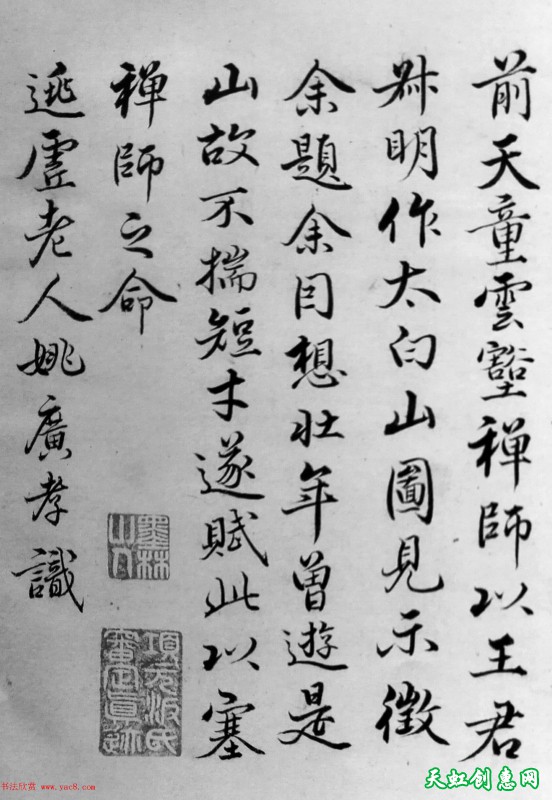 前天童雲壑禪師以王君
叔明作太白山圖見示徵
余題余因想壯年曾遊是
山故不揣短才遂賦此以塞
禪師之命
逃虛老人姚廣孝識
墨林山人
項元汴氏審定真跡
书法欣赏 www.yac8.com
天虹创意网